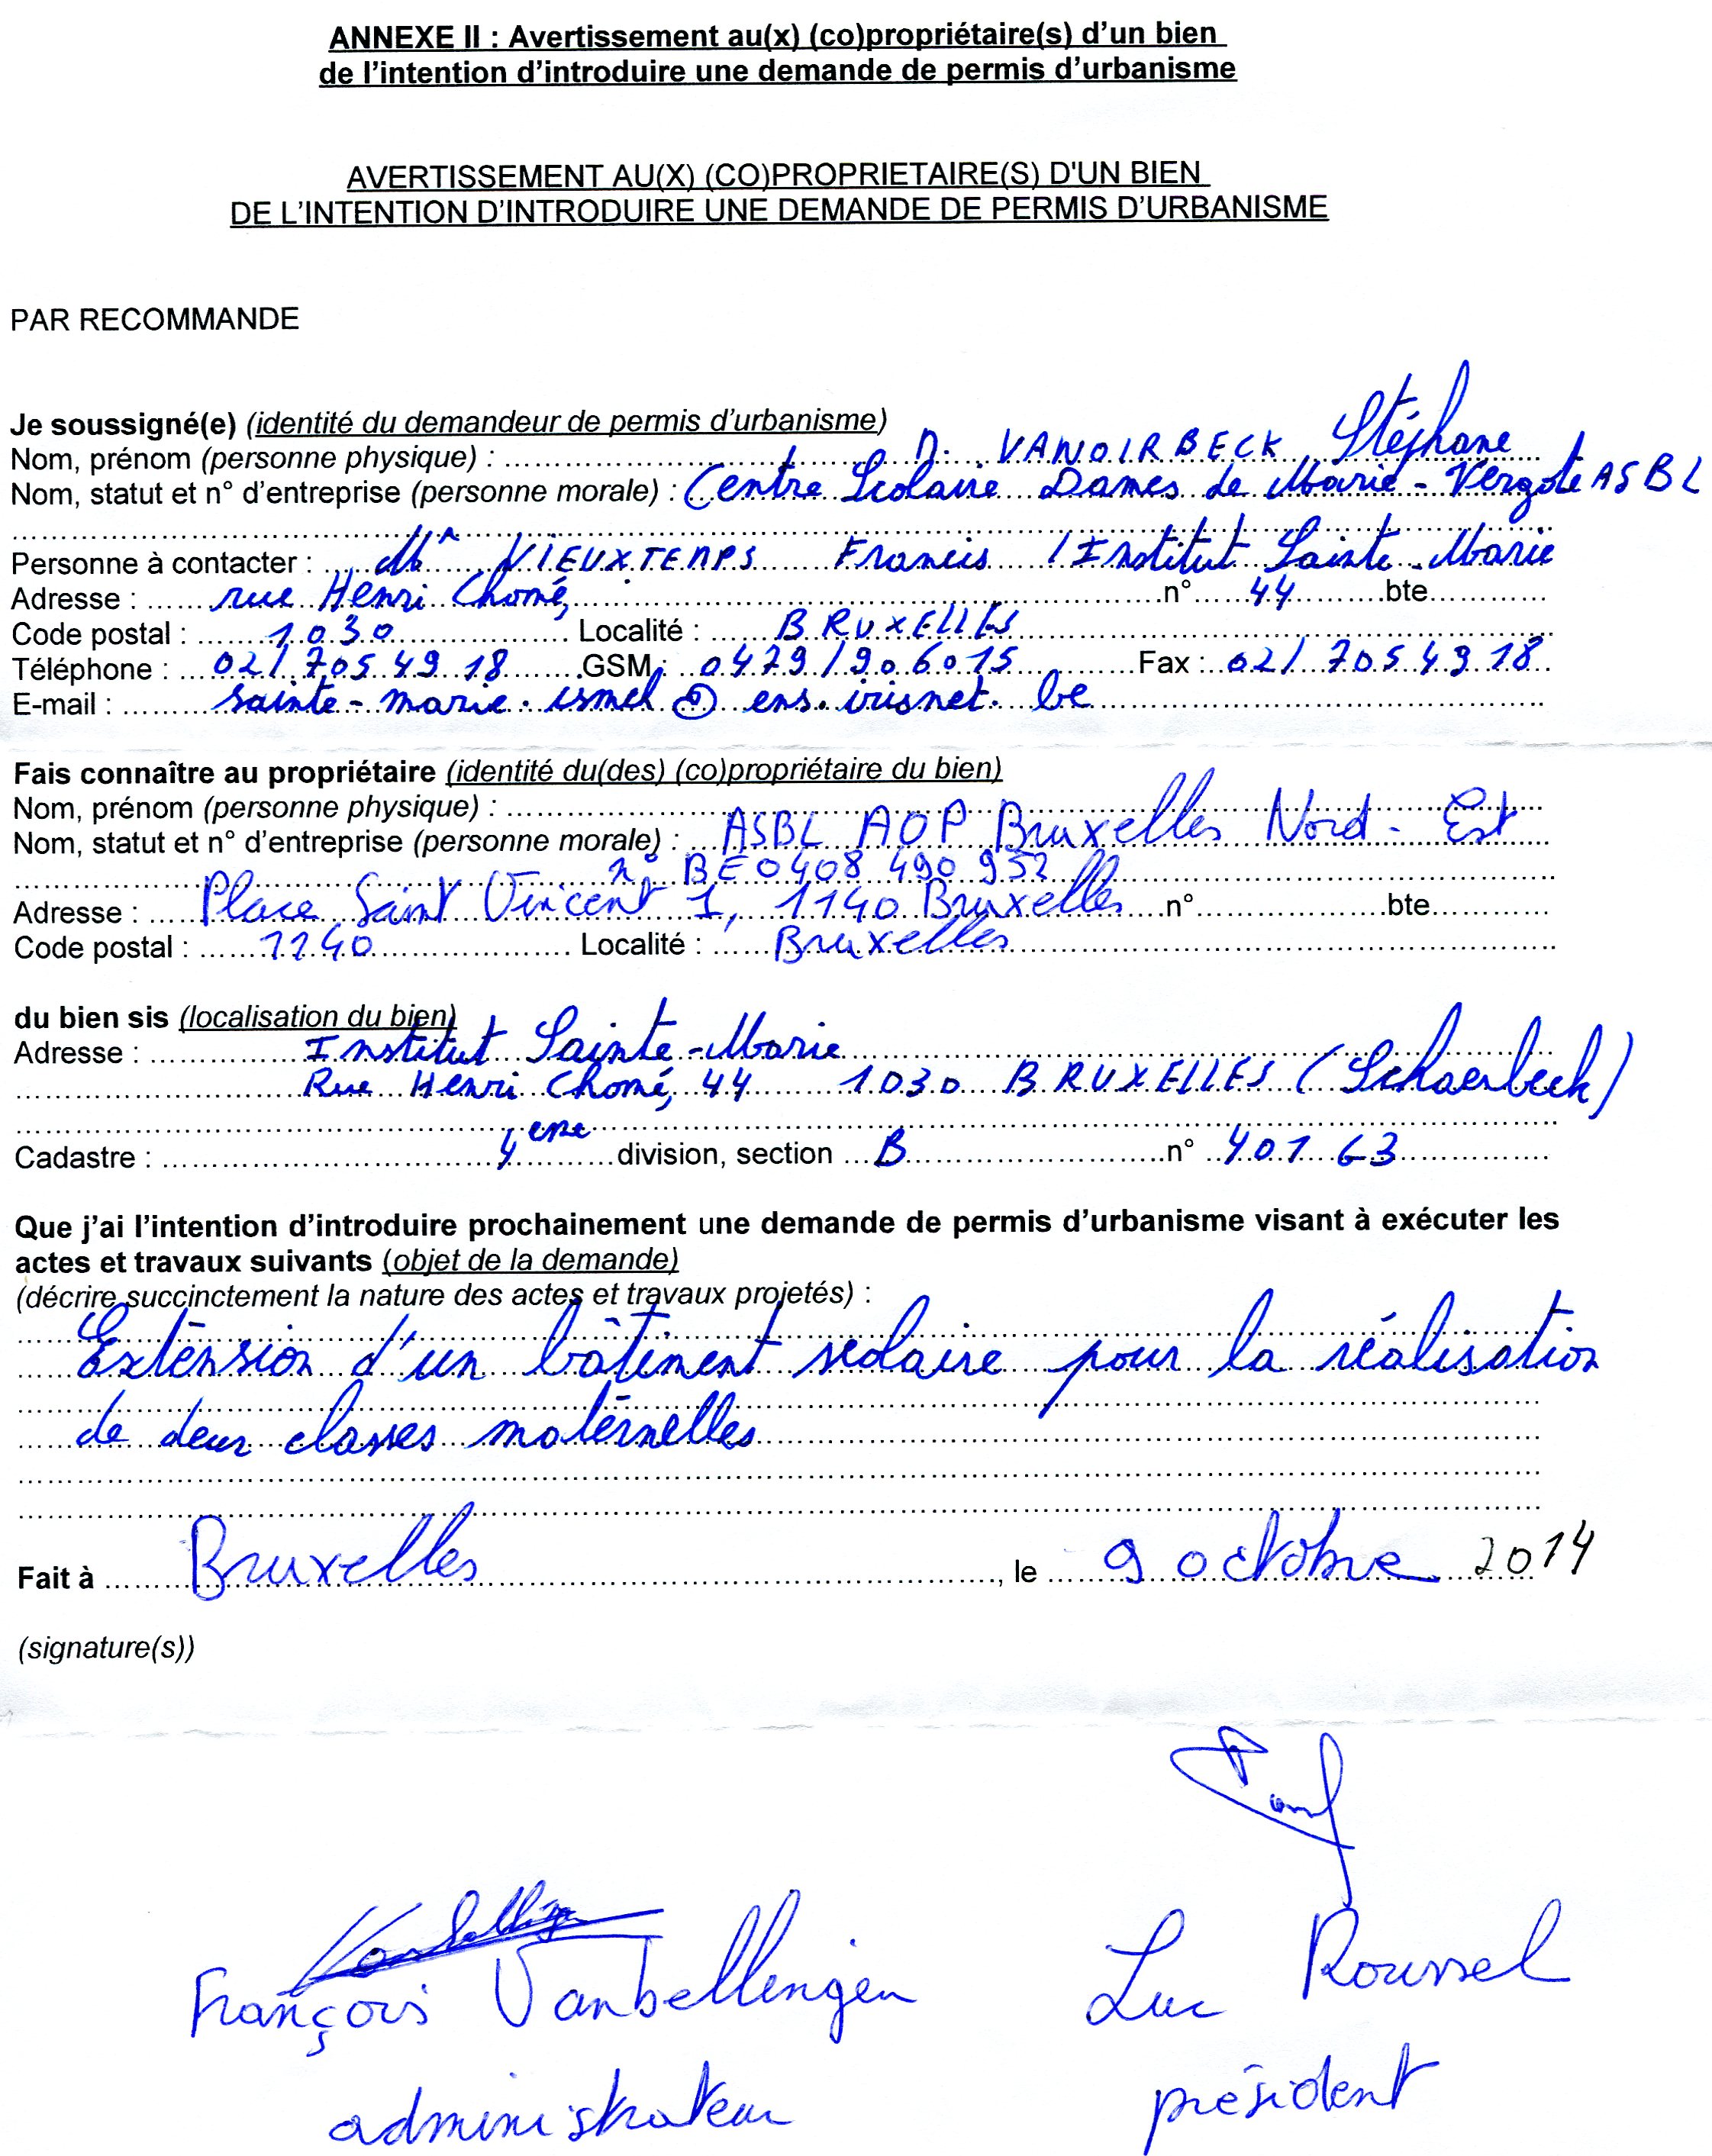 ANNEXE II : Avertissement au(x) (co)propriétaire(s) d'un bien
de l'intention d'introduire une demande de permis d'urbanisme
AVERTISSEMENT AU(X) (CO)PROPRIETAIRE(S) D'UN BIEN
DE L'INTENTION D'INTRODUIRE UNE DEMANDE DE PERMIS D'URBANISME
PAR RECOMMANDE
Je soussigné(e) (identité du demandeur de permis d'urbanisme)
Nom, prénom (personne physique) : VANOIRBECK Stéphane
Nom, statut et n° d'entreprise (personne morale) : Centre Scolaire Dames de Marie - Vergote ASBL
Personne à contacter : Mr VIEUXTEMPS Francis / Institut Sainte-Marie
Adresse : rue Henri Chomé, n° 44 bte
Code postal : 1030 Localité : BRUXELLES
Téléphone : 02/705 49 18 GSM : 0479/906015 Fax : 02/705 49 18
E-mail : sainte-marie.ismel@ens.irisnet.be
Fais connaître au propriétaire (identité du(des) (co)propriétaire du bien)
Nom, prénom (personne physique) :
Nom, statut et n° d'entreprise (personne morale) : ASBL AOP Bruxelles Nord-Est
n° BE0408 490 952
Adresse : Place Saint Vincent 1, 1140 Bruxelles n° bte
Code postal : 1140 Localité : Bruxelles
du bien sis (localisation du bien)
Adresse : Institut Sainte-Marie
Rue Henri Chomé, 44 1030 BRUXELLES (Schaerbeek)
Cadastre : 4eme division, section B n° 401 G3
Que j'ai l'intention d'introduire prochainement une demande de permis d'urbanisme visant à exécuter les
actes et travaux suivants (objet de la demande)
(décrire succinctement la nature des actes et travaux projetés) :
Extension d'un bâtiment scolaire pour la réalisation
de deux classes maternelles
Fait à Bruxelles, le 9 octobre 2014
(signature(s))
François Vanbellingen Luc Roussel
administrateur président